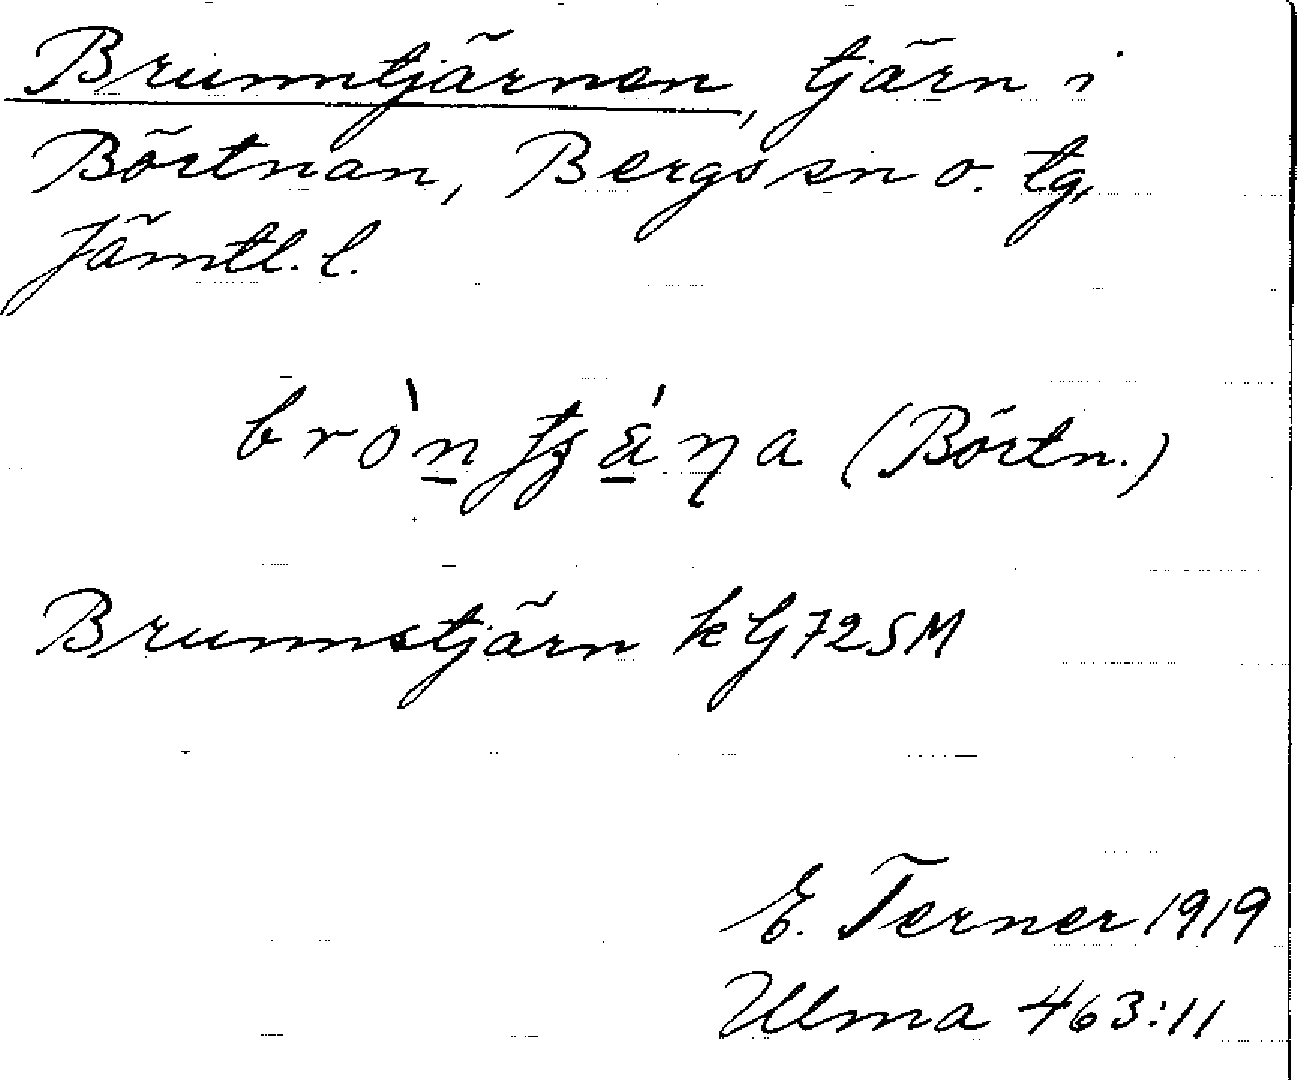 Brunntjärnen, tjärn i
Börtnan, Bergs sn o. tg,
Jämtl. l.
(Börtn.)
Brunnstjärn k G72SM
E. Terner 1919
Ulma 463:11